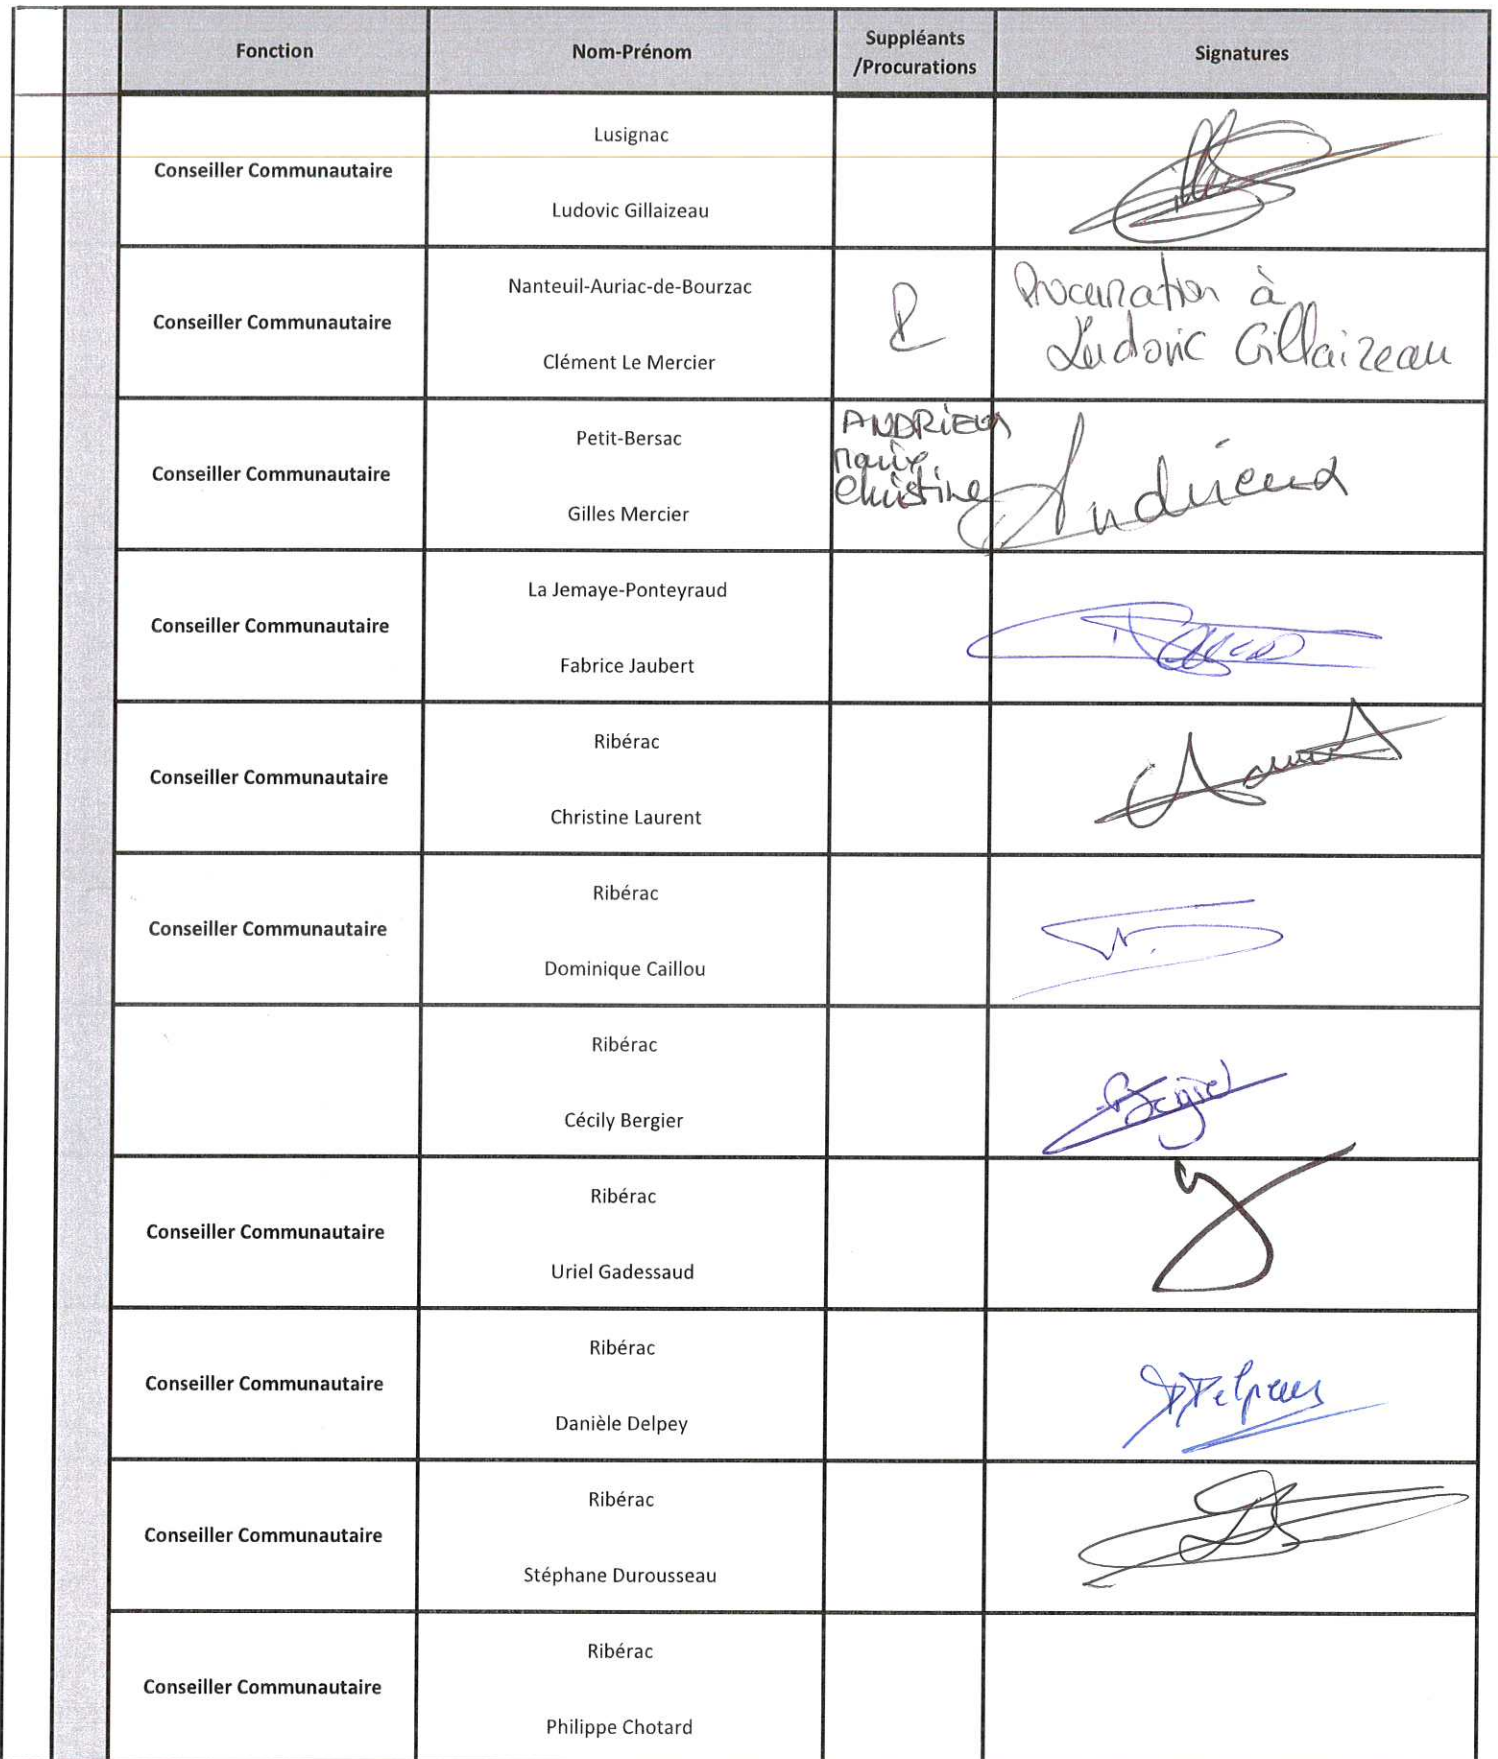 Fonction
Nom-Prénom
Suppléants
/Procurations
Signatures
Conseiller Communautaire
Lusignac
Ludovic Gillaizeau
Conseiller Communautaire
Nanteuil-Auriac-de-Bourzac
Clément Le Mercier
P
Procuration à
Ludovic Gillaizeau
Conseiller Communautaire
Petit-Bersac
Gilles Mercier
ANDRIEUX
Marie
Christine
Andrieux
Conseiller Communautaire
La Jemaye-Ponteyraud
Fabrice Jaubert
Conseiller Communautaire
Ribérac
Christine Laurent
Conseiller Communautaire
Ribérac
Dominique Caillou
Ribérac
Cécily Bergier
Bergier
Conseiller Communautaire
Ribérac
Uriel Gadessaud
Conseiller Communautaire
Ribérac
Danièle Delpey
Conseiller Communautaire
Ribérac
Stéphane Durousseau
Conseiller Communautaire
Ribérac
Philippe Chotard